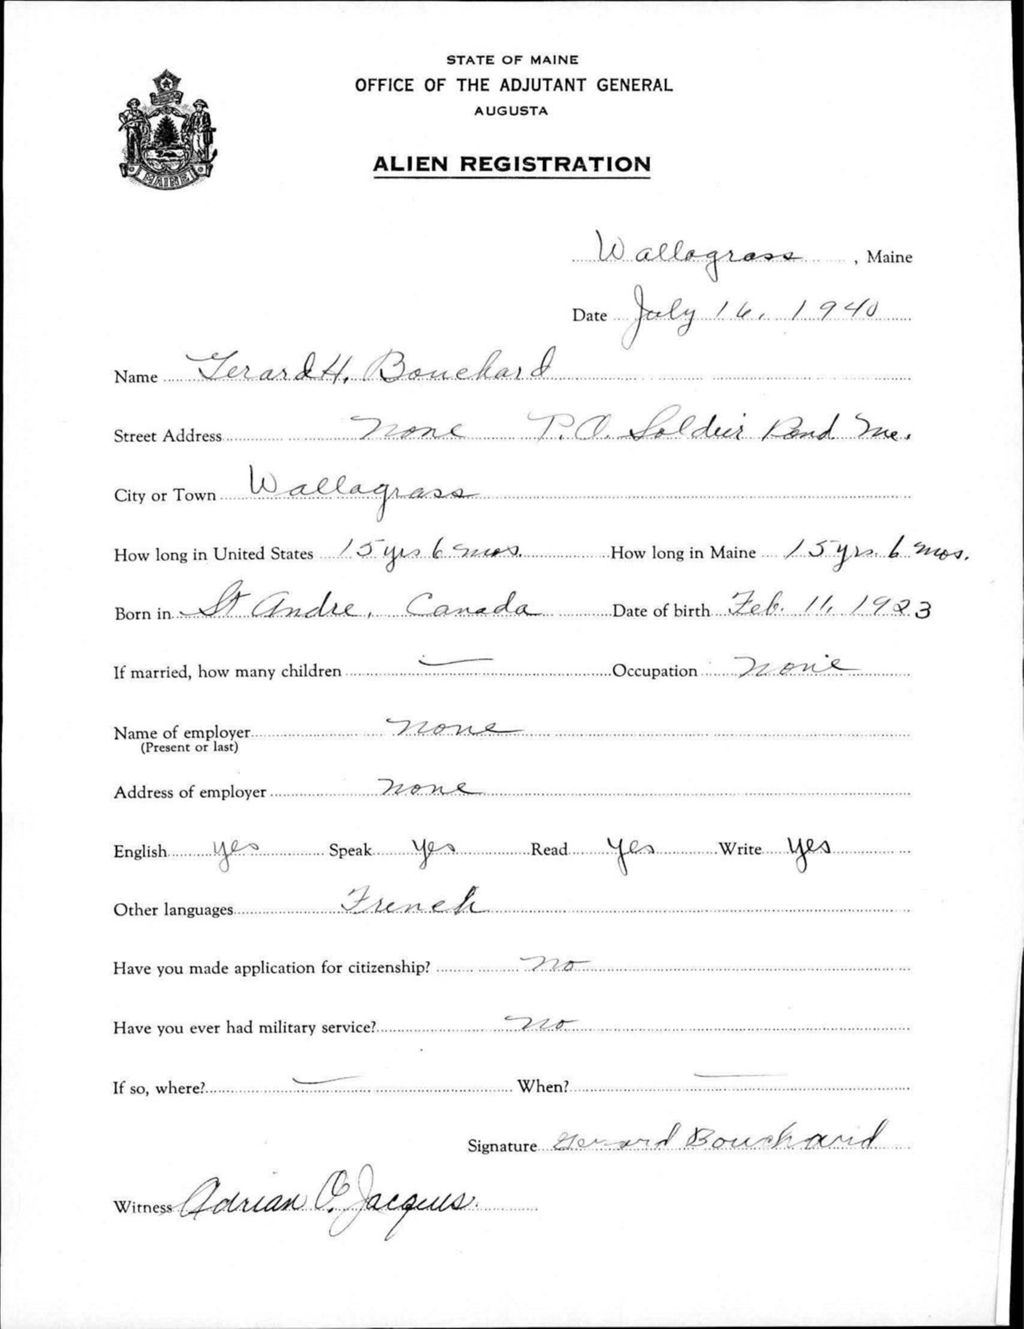 STATE OF MAINE
OFFICE OF THE ADJUTANT GENERAL
AUGUSTA
ALIEN REGISTRATION
MAINE
Wallagrass, Maine
Date July 16, 1940
Name Gerard H. Bouchard
Street Address None P.O. Soldier Pond Me.
City or Town Wallagrass
How long in United States 15 yrs 6 mos. How long in Maine 15 yrs. 6 mos.
Born in St Andre, Canada Date of birth Feb. 11, 1923
If married, how many children — Occupation none
Name of employer none
(Present or last)
Address of employer none
English yes Speak yes Read yes Write yes
Other languages French
Have you made application for citizenship? no
Have you ever had military service? no
If so, where? — When? —
Signature Gerard Bouchard
Witness Adrian O. Jacques.